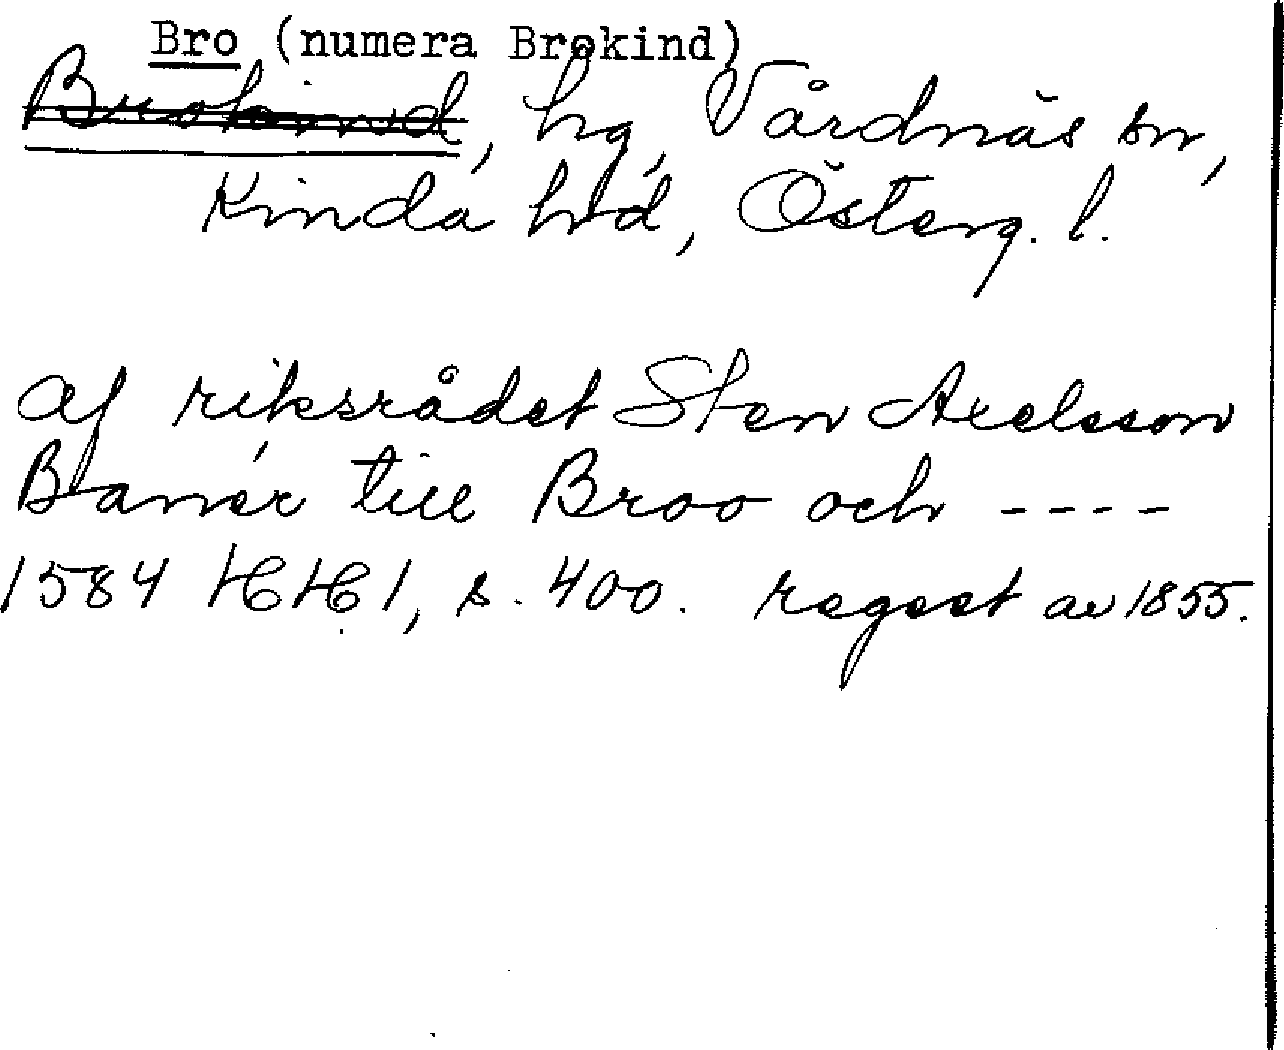 Bro (numera Brokind)
Brokind, hg, Vårdnäs sn,
Kinda hd, Österg. l.
af riksrådet Sten Axelsson
Banér till Broo och ----
1584 HH 1, s. 400. regest av 1855.